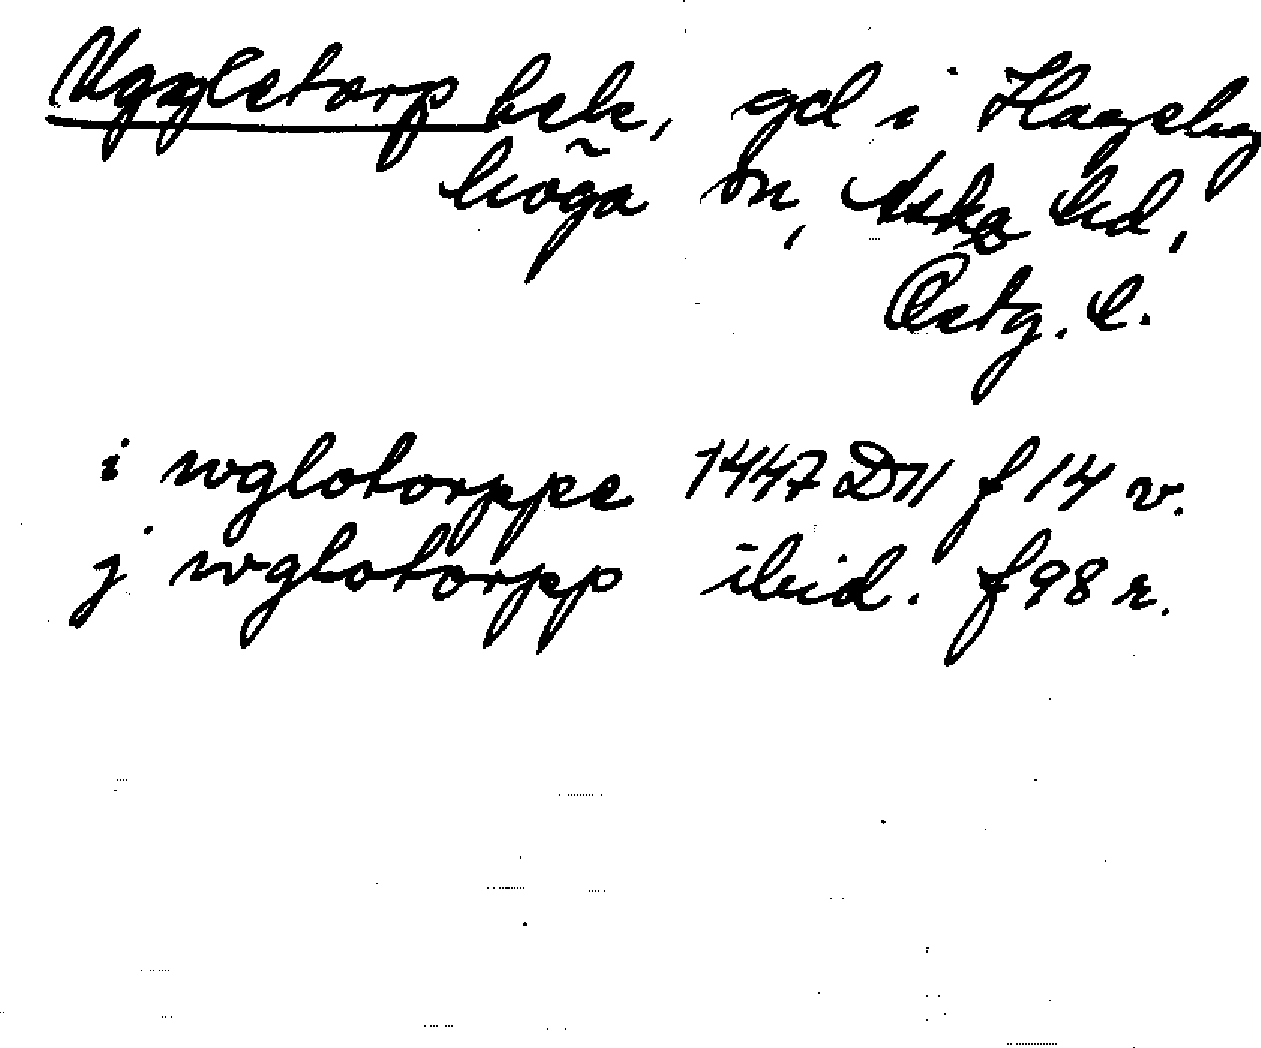 Uggletorp bebe, gd i Hageby
höga sn, Aska hd,
Östg. l.
i wglotorppe 1447 D11 f 14 v.
j wglotorpp ibid. f 98 r.